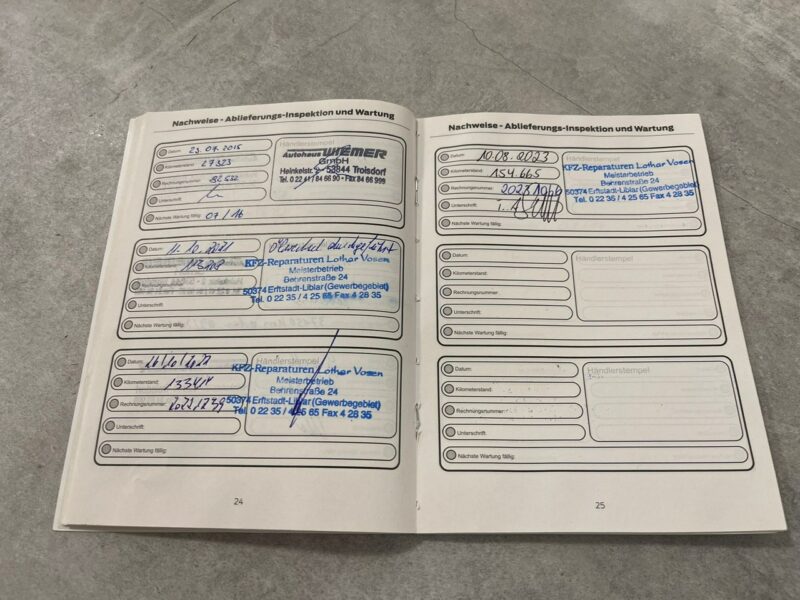 Nachweise - Ablieferungs-Inspektion und Wartung
Datum: 23.07.2015
Kilometerstand: 27323
Rechnungsnummer:
Unterschrift:
Nächste Wartung fällig: 07/16
Händlerstempel
Autohaus WIEMER
GmbH
Heinkelstr. 2 · 53844 Troisdorf
Tel. 0 22 41 / 84 66 90 - Fax 84 66 999
Datum: 11.10.2021
Kilometerstand:
Rechnungsnummer:
Unterschrift:
Nächste Wartung fällig:
Ölwechsel durchgeführt
KFZ-Reparaturen Lothar Vosen
Meisterbetrieb
Behrenstraße 24
50374 Erftstadt-Liblar (Gewerbegebiet)
Tel. 0 22 35 / 4 25 65 Fax 4 28 35
Datum:
Kilometerstand:
Rechnungsnummer:
Unterschrift:
Nächste Wartung fällig:
Händlerstempel
KFZ-Reparaturen Lothar Vosen
Meisterbetrieb
Behrenstraße 24
50374 Erftstadt-Liblar (Gewerbegebiet)
Tel. 0 22 35 / 4 25 65 Fax 4 28 35
24
Nachweise - Ablieferungs-Inspektion und Wartung
Datum: 10.08.2023
Kilometerstand: 154.665
Rechnungsnummer:
Unterschrift:
Nächste Wartung fällig:
KFZ-Reparaturen Lothar Vosen
Meisterbetrieb
Behrenstraße 24
50374 Erftstadt-Liblar (Gewerbegebiet)
Tel. 0 22 35 / 4 25 65 Fax 4 28 35
Datum:
Kilometerstand:
Rechnungsnummer:
Unterschrift:
Nächste Wartung fällig:
Händlerstempel
Datum:
Kilometerstand:
Rechnungsnummer:
Unterschrift:
Nächste Wartung fällig:
Händlerstempel
25